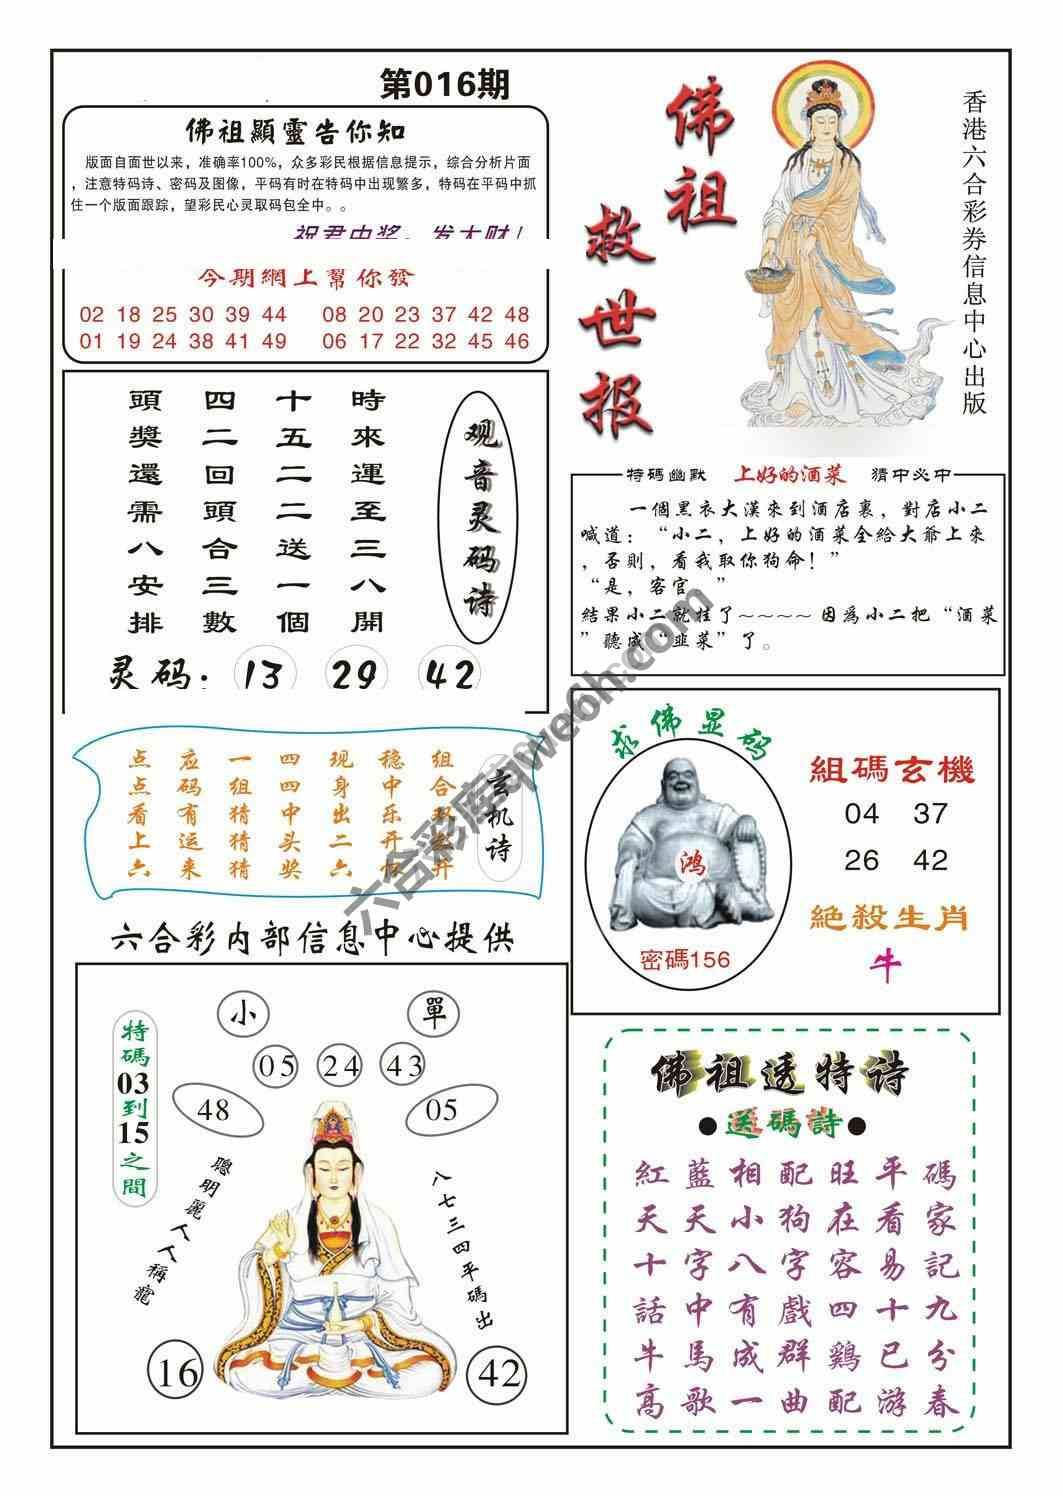 第016期
佛祖顯靈告你知
版面自面世以来，准确率100%，众多彩民根据信息提示，综合分析片面
，注意特码诗、密码及图像，平码有时在特码中出现繁多，特码在平码中抓
住一个版面跟踪，望彩民心灵取码包全中。。
祝君中奖，发大财！
今期網上幫你發
02 18 25 30 39 44 08 20 23 37 42 48
01 19 24 38 41 49 06 17 22 32 45 46
佛祖
救世报
香港六合彩券信息中心出版
頭四十時
獎二五來
還回二運
需頭二至
八合送三
安三一八
排數個開
观音灵码诗
灵码：13 29 42
特碼幽默 上好的酒菜 猜中必中
一個黑衣大漢來到酒店裏，對店小二
喊道：“小二，上好的酒菜全給大爺上來
，否則，看我取你狗命！”
“是，客官。”
結果小二就挂了~~~~因爲小二把“酒菜
”聽成“韭菜”了。
点应一四现稳组
点码组四身中合
看有猜中出乐
上运猜头二开
六来猜奖六怀开
玄机诗
求佛显码
鸿
密碼156
組碼玄機
04 37
26 42
絕殺生肖
牛
六合彩内部信息中心提供
小 單
05 24 43
48 05
特碼03到15之間
聰明麗人人稱寵
八七三四平碼出
16 42
佛祖透特诗
●送碼詩●
紅藍相配旺平碼
天天小狗在看家
十字八字容易記
話中有戲四十九
牛馬成群鷄已分
高歌一曲配游春
六合彩库qwe6h.com